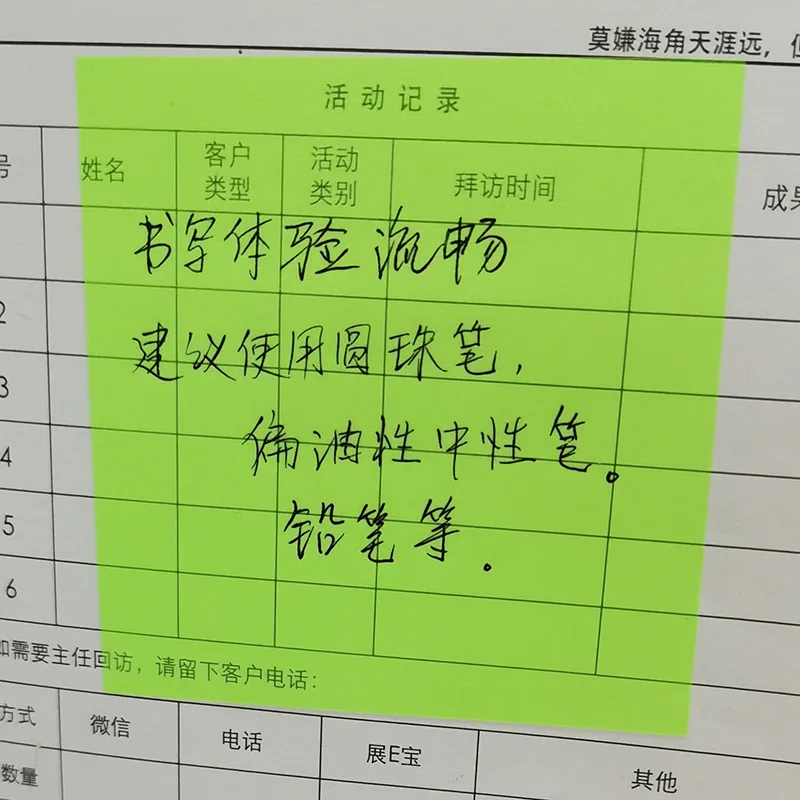 莫嫌海角天涯远，但
活动记录
号 姓名 客户类型 活动类别 拜访时间 成果
书写体验流畅
2
建议使用圆珠笔，
3
偏油性中性笔。
4
铅笔等.
5
6
如需要主任回访，请留下客户电话：
方式 微信 电话 展E宝 其他
数量